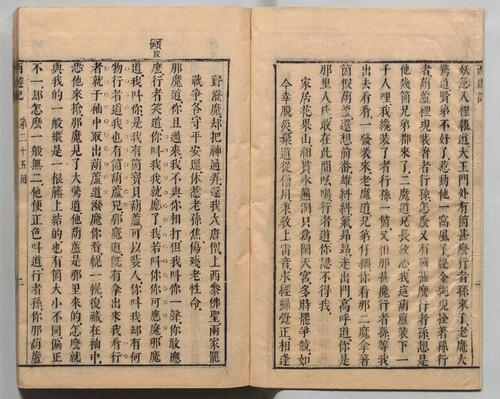 西遊記
妖急入裡報道大王門外有箇甚麼行者孫來了老魔大
驚道賢弟不好了惹動他一窩風了幌金繩現拴著孫行
者葫蘆裡現裝著者行孫怎麼又有箇甚麼行者孫想是
他幾箇兄弟都來了二魔道兄長放心我這葫蘆裝下一
千人哩我纔裝了者行孫一箇又怕那甚麼行者孫等我
出去看看一發裝來老魔道兄弟仔細你看那二魔拿著
箇假葫蘆還像前番雄糾糾氣昂昂走出門高呼道你是
那里人氏敢在此間吆喝行者道你認不得我
家居花果山祖貫水簾洞只為鬧天宮多時罷爭競如
今幸脫災棄道從僧用秉教上雷音求經歸覺正相逢
頑皮
野潑魔却把神通弄還我大唐僧上西參佛聖兩家罷
戰爭各守平安逕休惹老孫焦傷殘老性命
那魔道你且過來我不與你相打但我叫你一聲你敢應
麼行者笑道你叫我我就應了我若叫你你可應麼那魔
道我叫你是我有箇寶貝葫蘆可以裝人你叫我却有何
物行者道我也有箇葫蘆兒那魔道既有拿出來我看行
者就于袖中取出葫蘆道潑魔你看幌一幌復藏在袖中
恐他來搶那魔見了大驚道他葫蘆是那里來的怎麼就
與我的一般縱是一根籐上結的也有箇大小不同偏正
不一却怎麼一般無二他便正色叫道行者孫你那葫蘆
西遊記 第三十五回 二